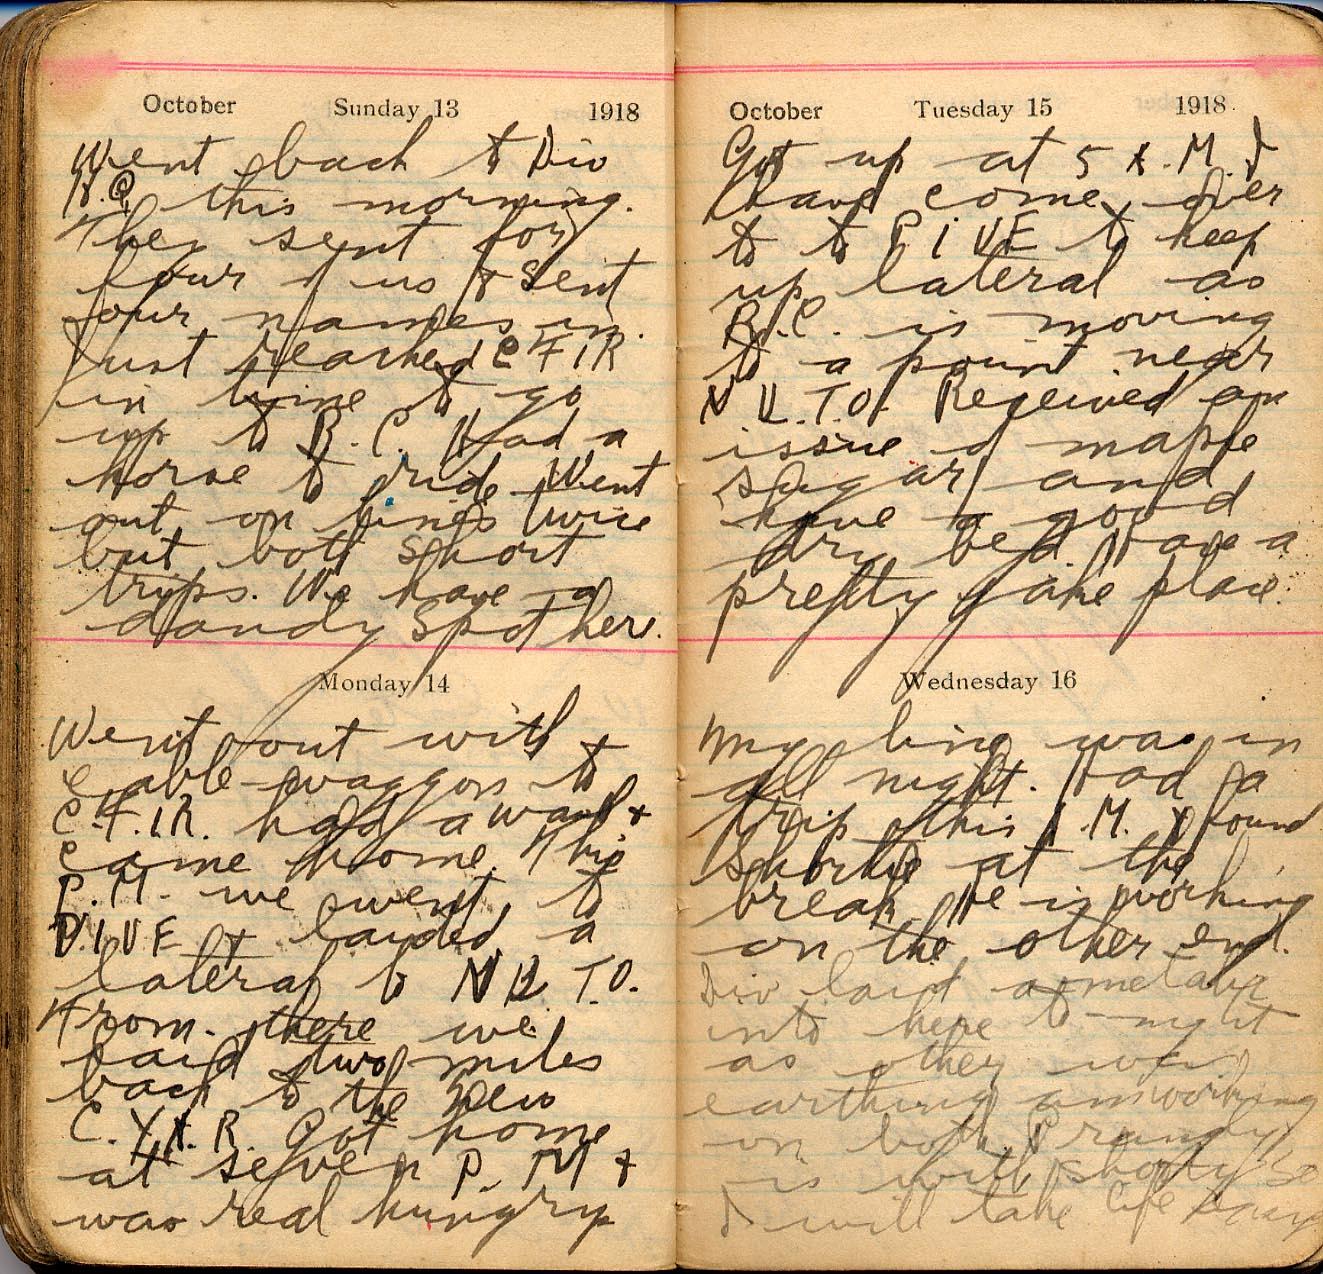 October Sunday 13 1918
Went back to Div
H.Q. this morning.
They sent for
four of us & sent
our names in.
Just reached C F I R
in time to go
up to B. C. Had a
horse to ride Went
out on lines twice
but both short
trips. We have a
dandy spot her.
Monday 14
Went out with
cable waggon to
C.F.I.R. had a wash &
came home. This
P.M. we went to
P.I.V.E & laided a
lateral to N T.O.
From there we
laid two miles
back to the new
C. Y. R. Got home
at seven P. M &
was real hungry
October Tuesday 15 1918
Got up at 5 A.M. I
have come over
to to P I V E to keep
up lateral as
B.C. is moving
to a point near
N T.O. Received an
issue of maple
sugar and
have a good
dry bed. Have a
pretty jake place.
Wednesday 16
My line was in
all night. Had a
trip this A.M. & found
Shortie at the
break He is working
on the other end.
Div laid a metalic
into here to-night
as other was
earthing am working
on both. Grandy
is with Shorty so
I will take life easy